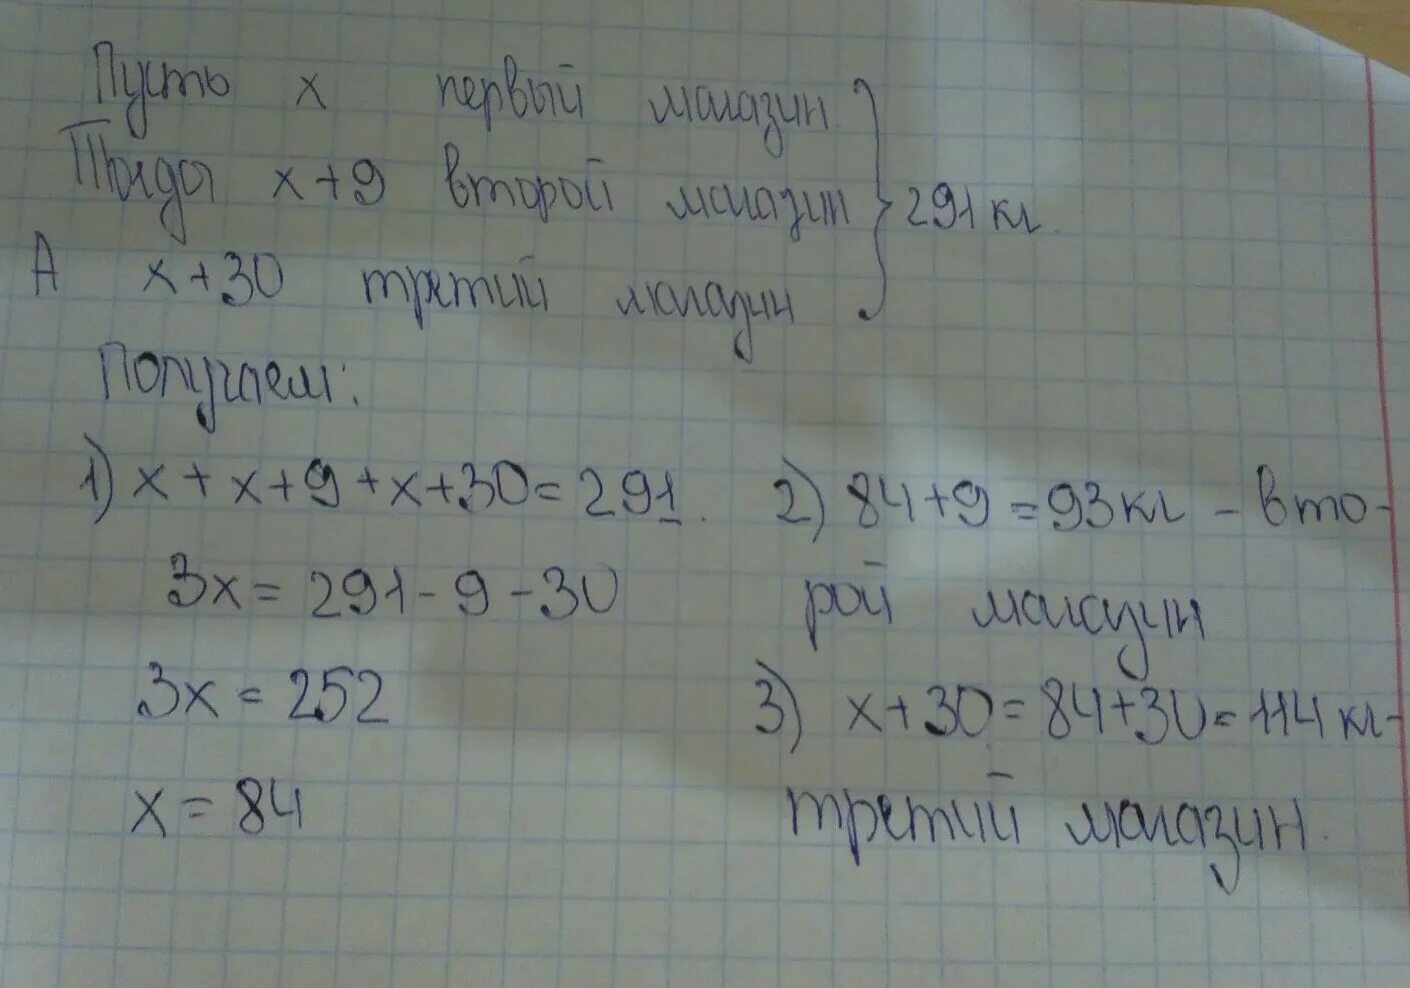 Пусть x первый магазин
Тогда x+9 второй магазин } 291 кг.
А x+30 третий магазин
Получаем:
1) x+x+9+x+30=291.
3x=291-9-30
3x=252
x=84
2) 84+9=93кг - вто-
рой магазин
3) x+30=84+30=114кг-
третий магазин.